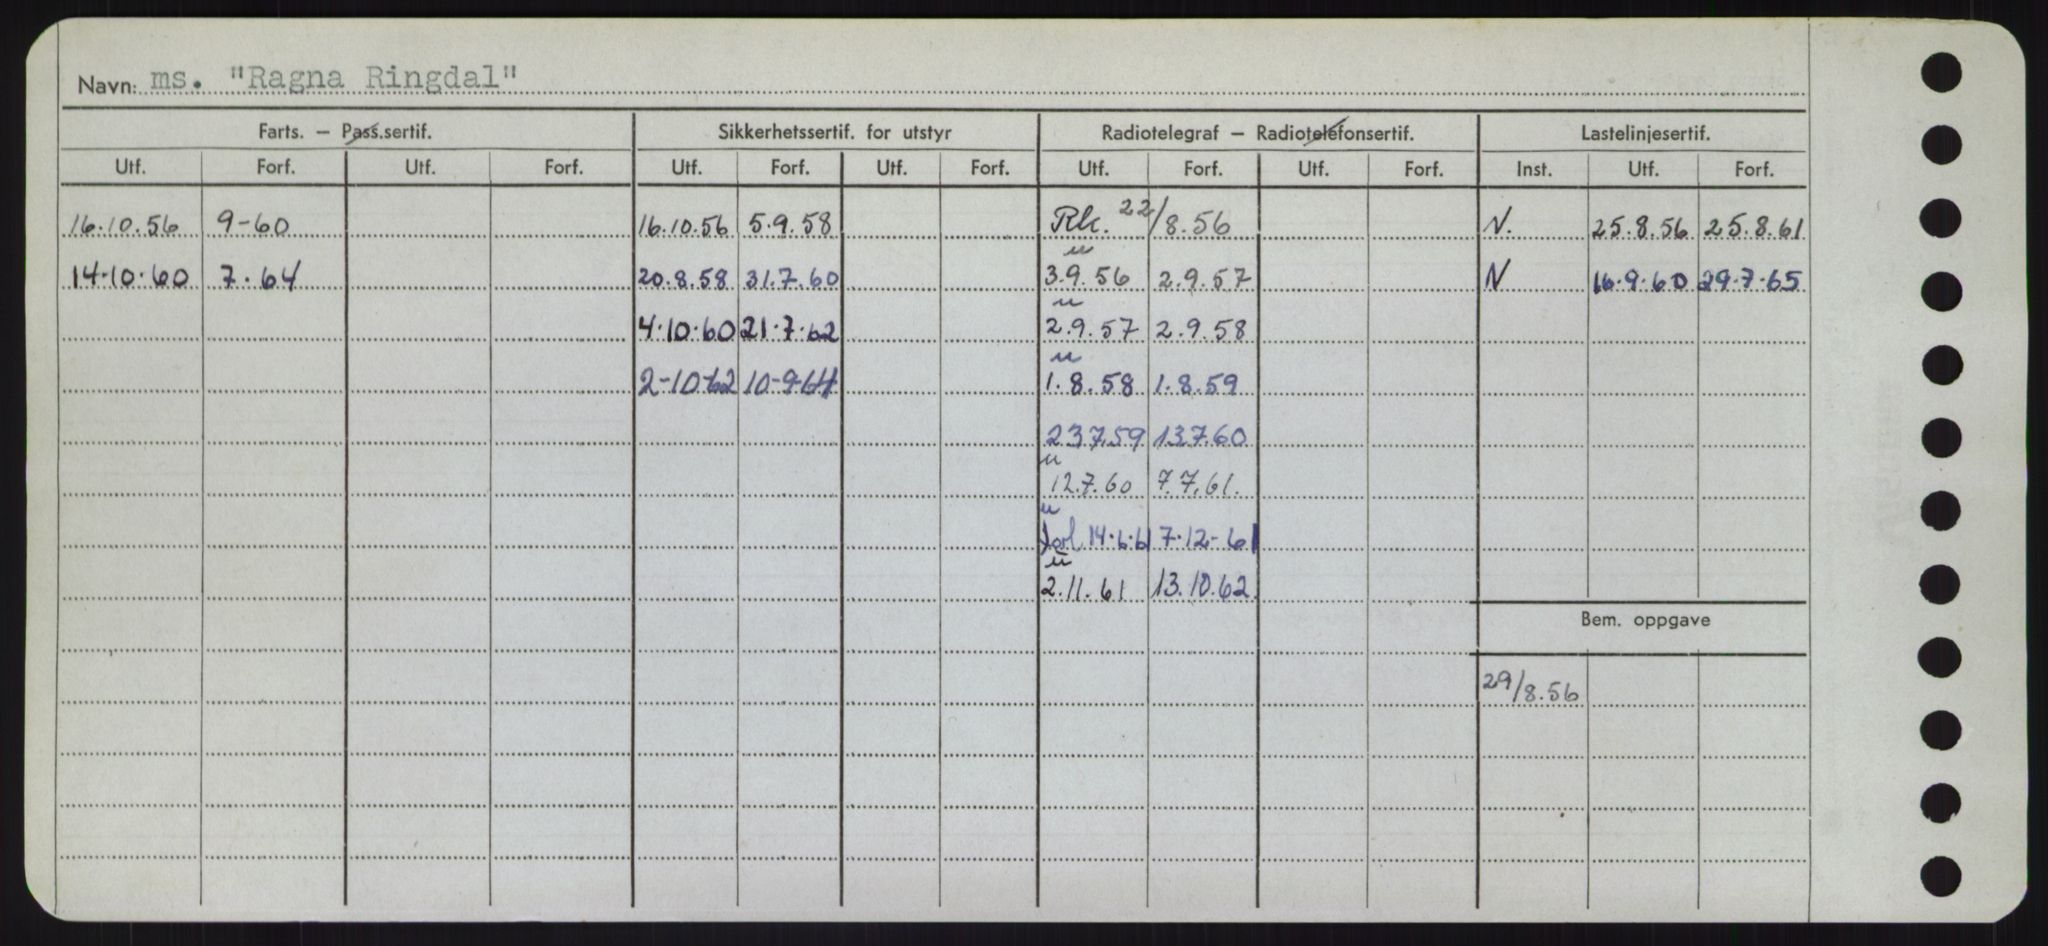 Navn: ms. "Ragna Ringdal"
Farts. — Pass.sertif. Sikkerhetssertif. for utstyr Radiotelegraf — Radiotelefonsertif. Lastelinjesertif.
Utf. Forf. Utf. Forf. Utf. Forf. Utf. Forf. Utf. Forf. Utf. Forf. Inst. Utf. Forf.
16.10.56 9-60 16.10.56 5.9.58 Rk. 22/8.56 N. 25.8.56 25.8.61
u
14.10.60 7.64 20.8.58 31.7.60 3.9.56 2.9.57 N 16.9.60 29.7.65
u
4.10.60 21.7.62 2.9.57 2.9.58
u
2-10-62 10-9-64 1.8.58 1.8.59
23.7.59 13.7.60
u
12.7.60 7.7.61.
u
forl 14.6.61 7.12-61
u
2.11.61 13.10.62
Bem. oppgave
29/8.56